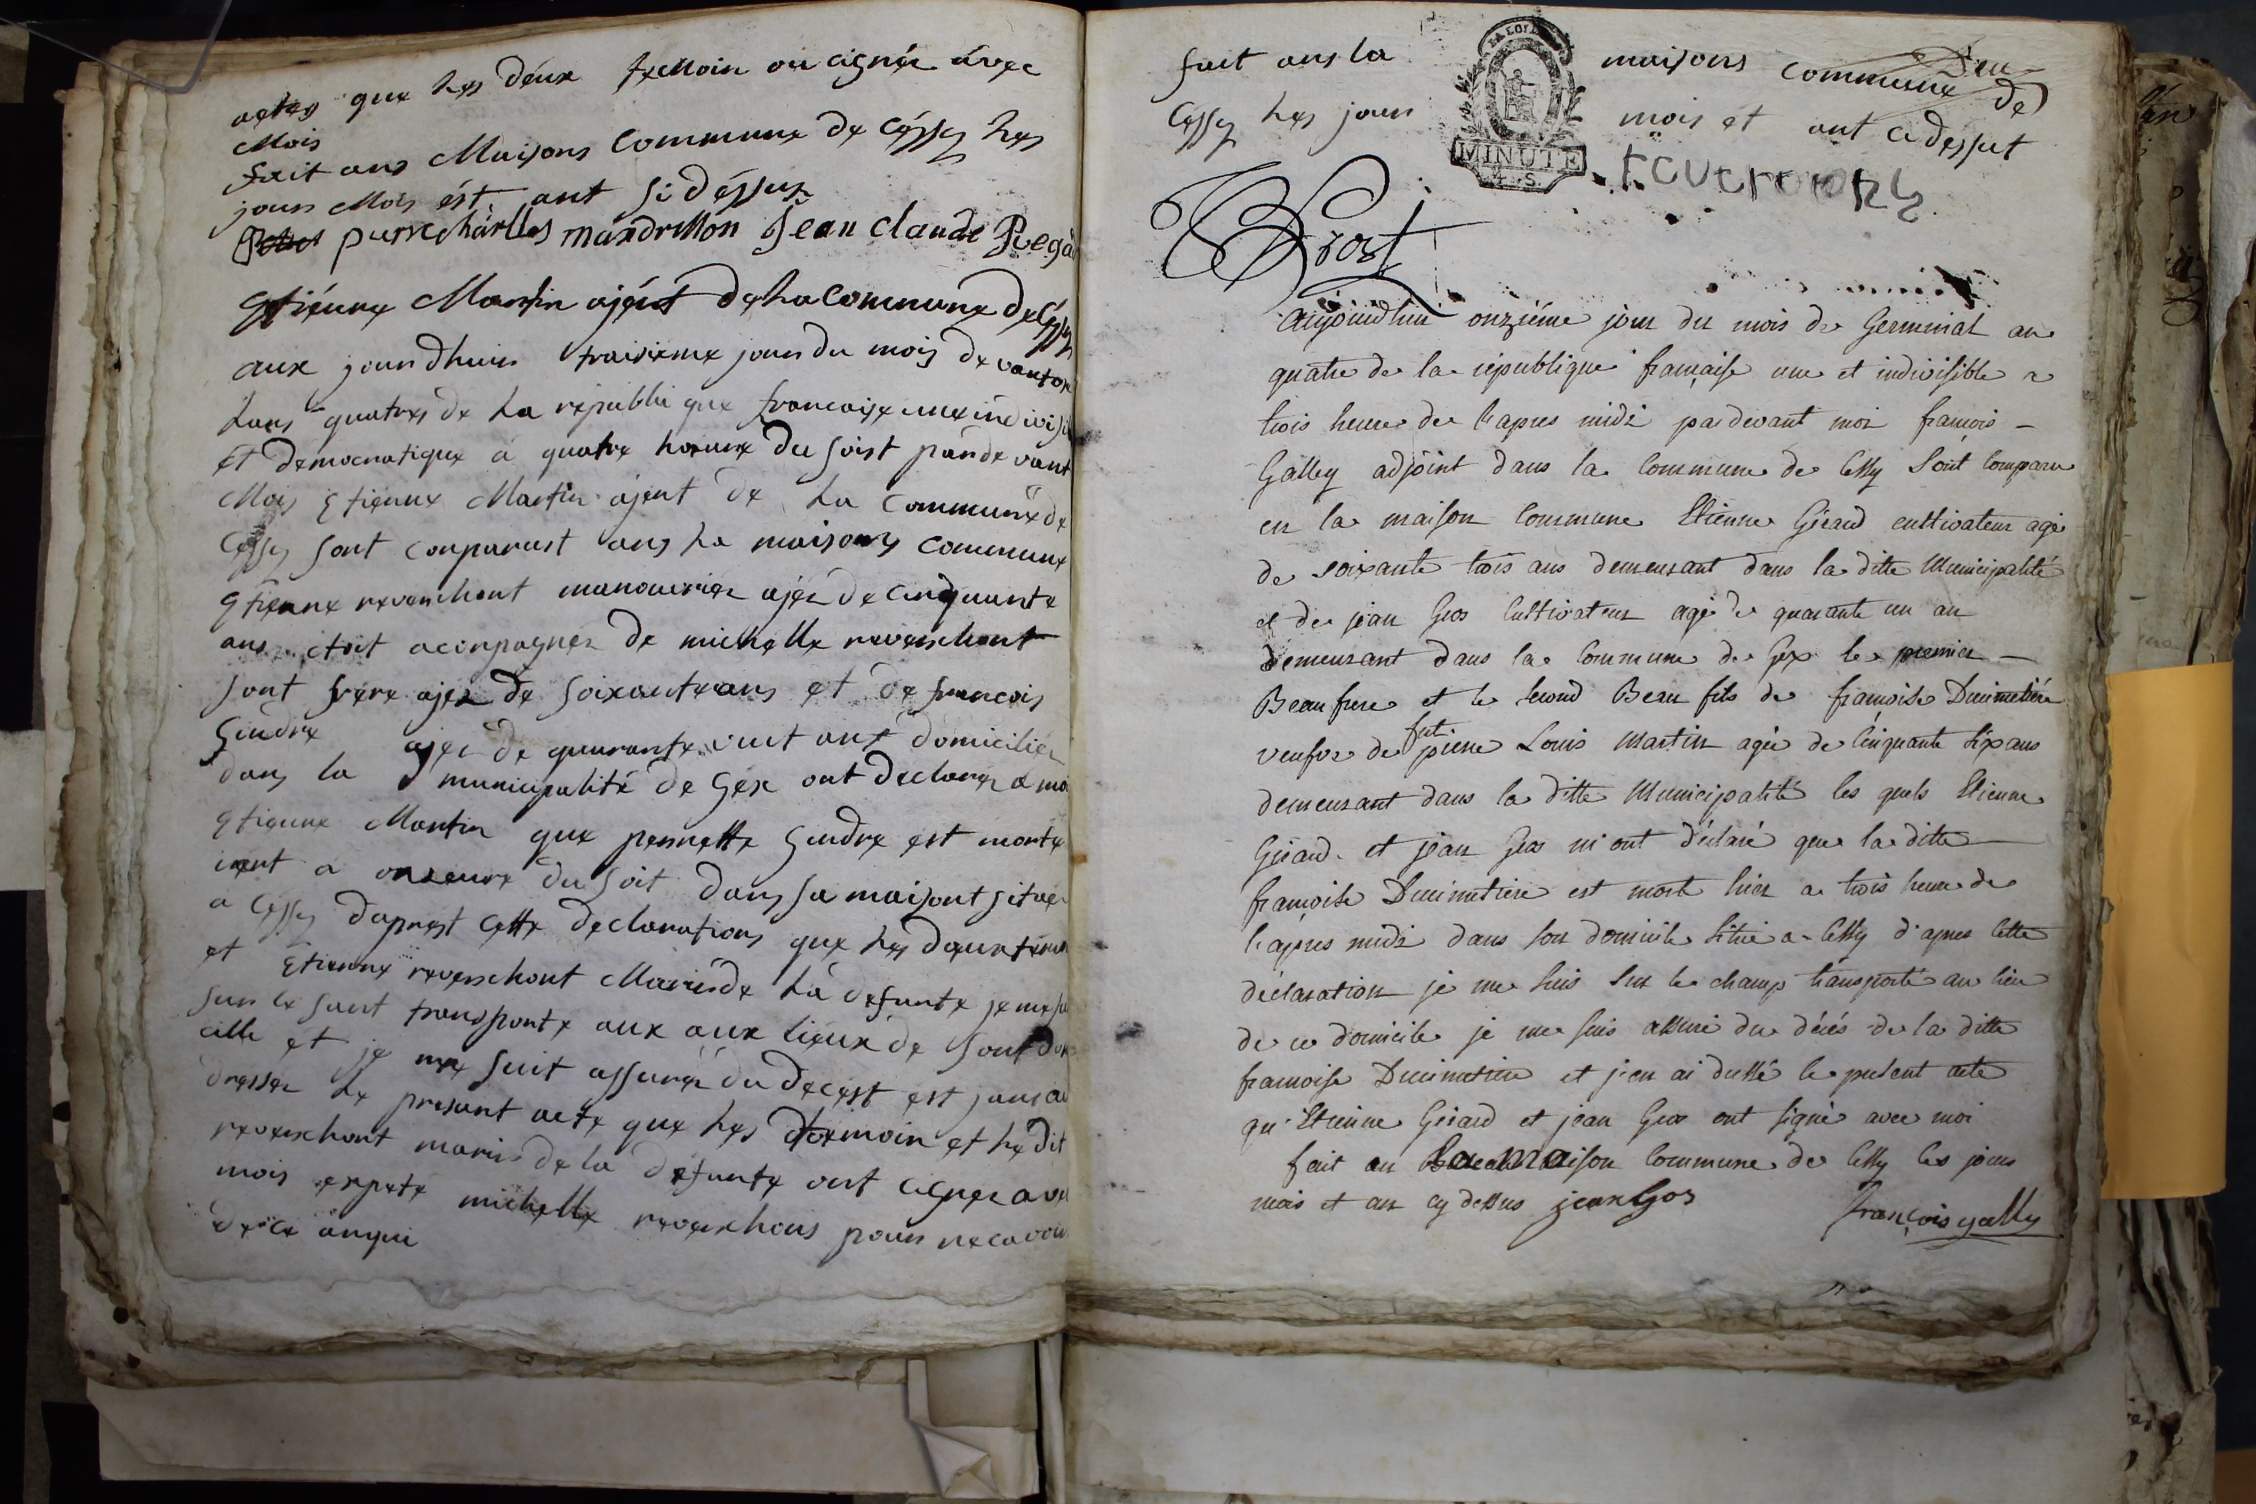 actes que les deux temoin on cignér avec
Mois
fait ans Maisons Commune de Céssy les
jours Mois ést ant si déssus
pierre chârlles mandrillon Jean claude Rega
Etiénne Martin ajént de la Commune de Céssy
aux jourdhuis traisieme jours du mois de vantos
lans quatres de la républi que francaise une indivisi
et democratique a quatre heure du soist pardevant
Mois Etienne Martin ajent de La Commune de
Cessy sont conparust ans la maisons commune
Etienne reverchont manouvrier ajér de cinquante
ans etoit aconpagnér de michelle reverchont
sont frére ajer de soixante ans et de francois
Gindre ajer de quarante vuit ans domicilier
dans la municipalité de Géx ont declarer a moi
Etienne Martin que pernette Gindre est morte
iert a onzeure du soit dans sa maisont situer
a Cessy daprest cette declarations que les deux témoi
et Etienne reverchont Mariéde la defunte je me su
sur le sant transporte aux aux lieux de sont dom
cille et je me suit assurér du decest est jans ai
dresser le presant acte que les temoin et le dit
reverchont maris de la defunte ont cigner avec
mois expeté michelle reverchons pour ne savoir
de ce anqui
fait ans la maisons commune de
Cessy les jours mois et ant ci dessut
LA LOI
MINUTE
4. S.
Brost
Aujourdhui onziéme jour du mois de Germinal an
quatre de la république française une et indivisible a
trois heure de l'apres midi pardevant moi françois –
Galley adjoint dans la Commune de Cessy sont comparu
en la maison Commune Etienne Girard cultivateur agé
de soixante trois ans demeurant dans la ditte Municipalité
et de jean Gros Cultivateur agé de quarante un an
demeurant dans la Commune de Gex le premier –
Beaufrere et le second Beau fils de françoise Ducimetiére
veufve de fut pierre Louis Martin agée de Cinquante six ans
demeurant dans la ditte Municipalité les quels Etienne
Girard et jean Gros m'ont déclaré que la ditte
françoise Ducimetiere est morte hier a trois heure de
l'apres midi dans son domicile situé a Cessy d'apres cette
déclaration je me suis sur le champ transporté au lieu
de ce domicile je me suis assuré du décés de la ditte
françoise Ducimetiere et j'en ai dressé le present acte
qu'Etienne Girard et jean Gros ont signé avec moi
fait en La maison Commune de Cessy les jours
mois et an cy dessus jean Gos
François gally